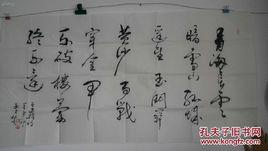 青海長雲
暗雪山孤城
遥望玉門關
黄沙百戰
穿金甲
不破樓蘭
終不還
孔夫子旧书网